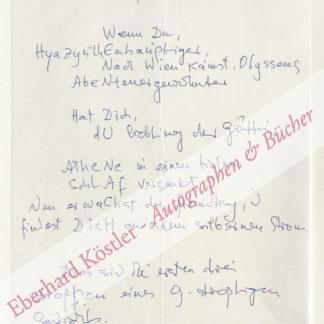 Wenn Du,
Hyazynthenhauptiger,
Nach Wien kamst, Odysseus
AbeNteuergewohnter
Hat Dich,
dU Liebling der Göttin
AtheNe in einen tiefen
SchlAf versenkt.
Nun erwachst du
findest DicH an einem silbernen Strom.
Eberhard Köstler - Autographen & Bücher
die ersten drei
Strophen eines 9-strophigen
Gedichts